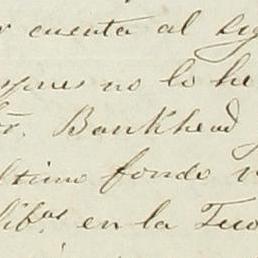 cuenta al
no lo he
or. Bankhead
ltimo fondo
lib.as en la Teso